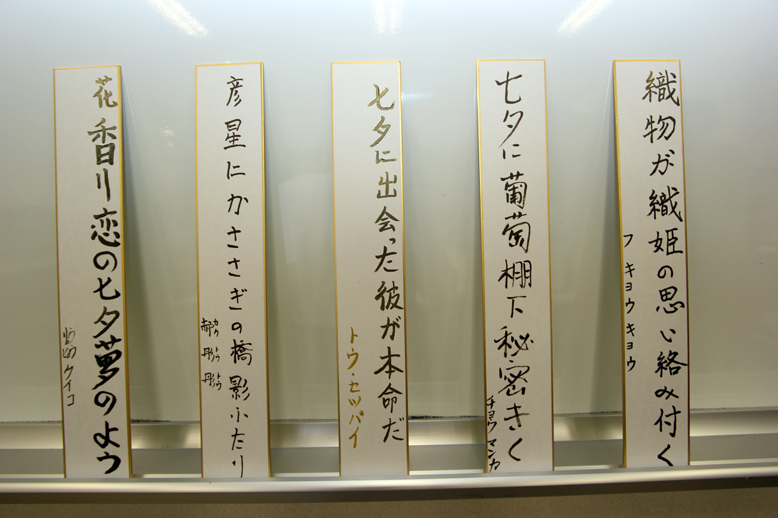 織物が織姫の思い絡み付く
フ キョウ キョウ
七夕に葡萄棚下秘密きく
チョウ マンカ
七夕に出会った彼が本命だ
トウ・セツバイ
彦星にかささぎの橋影ふたり
郝 彤彤
カク トウ トウ
花香り恋の七夕夢のよう
ケイコ